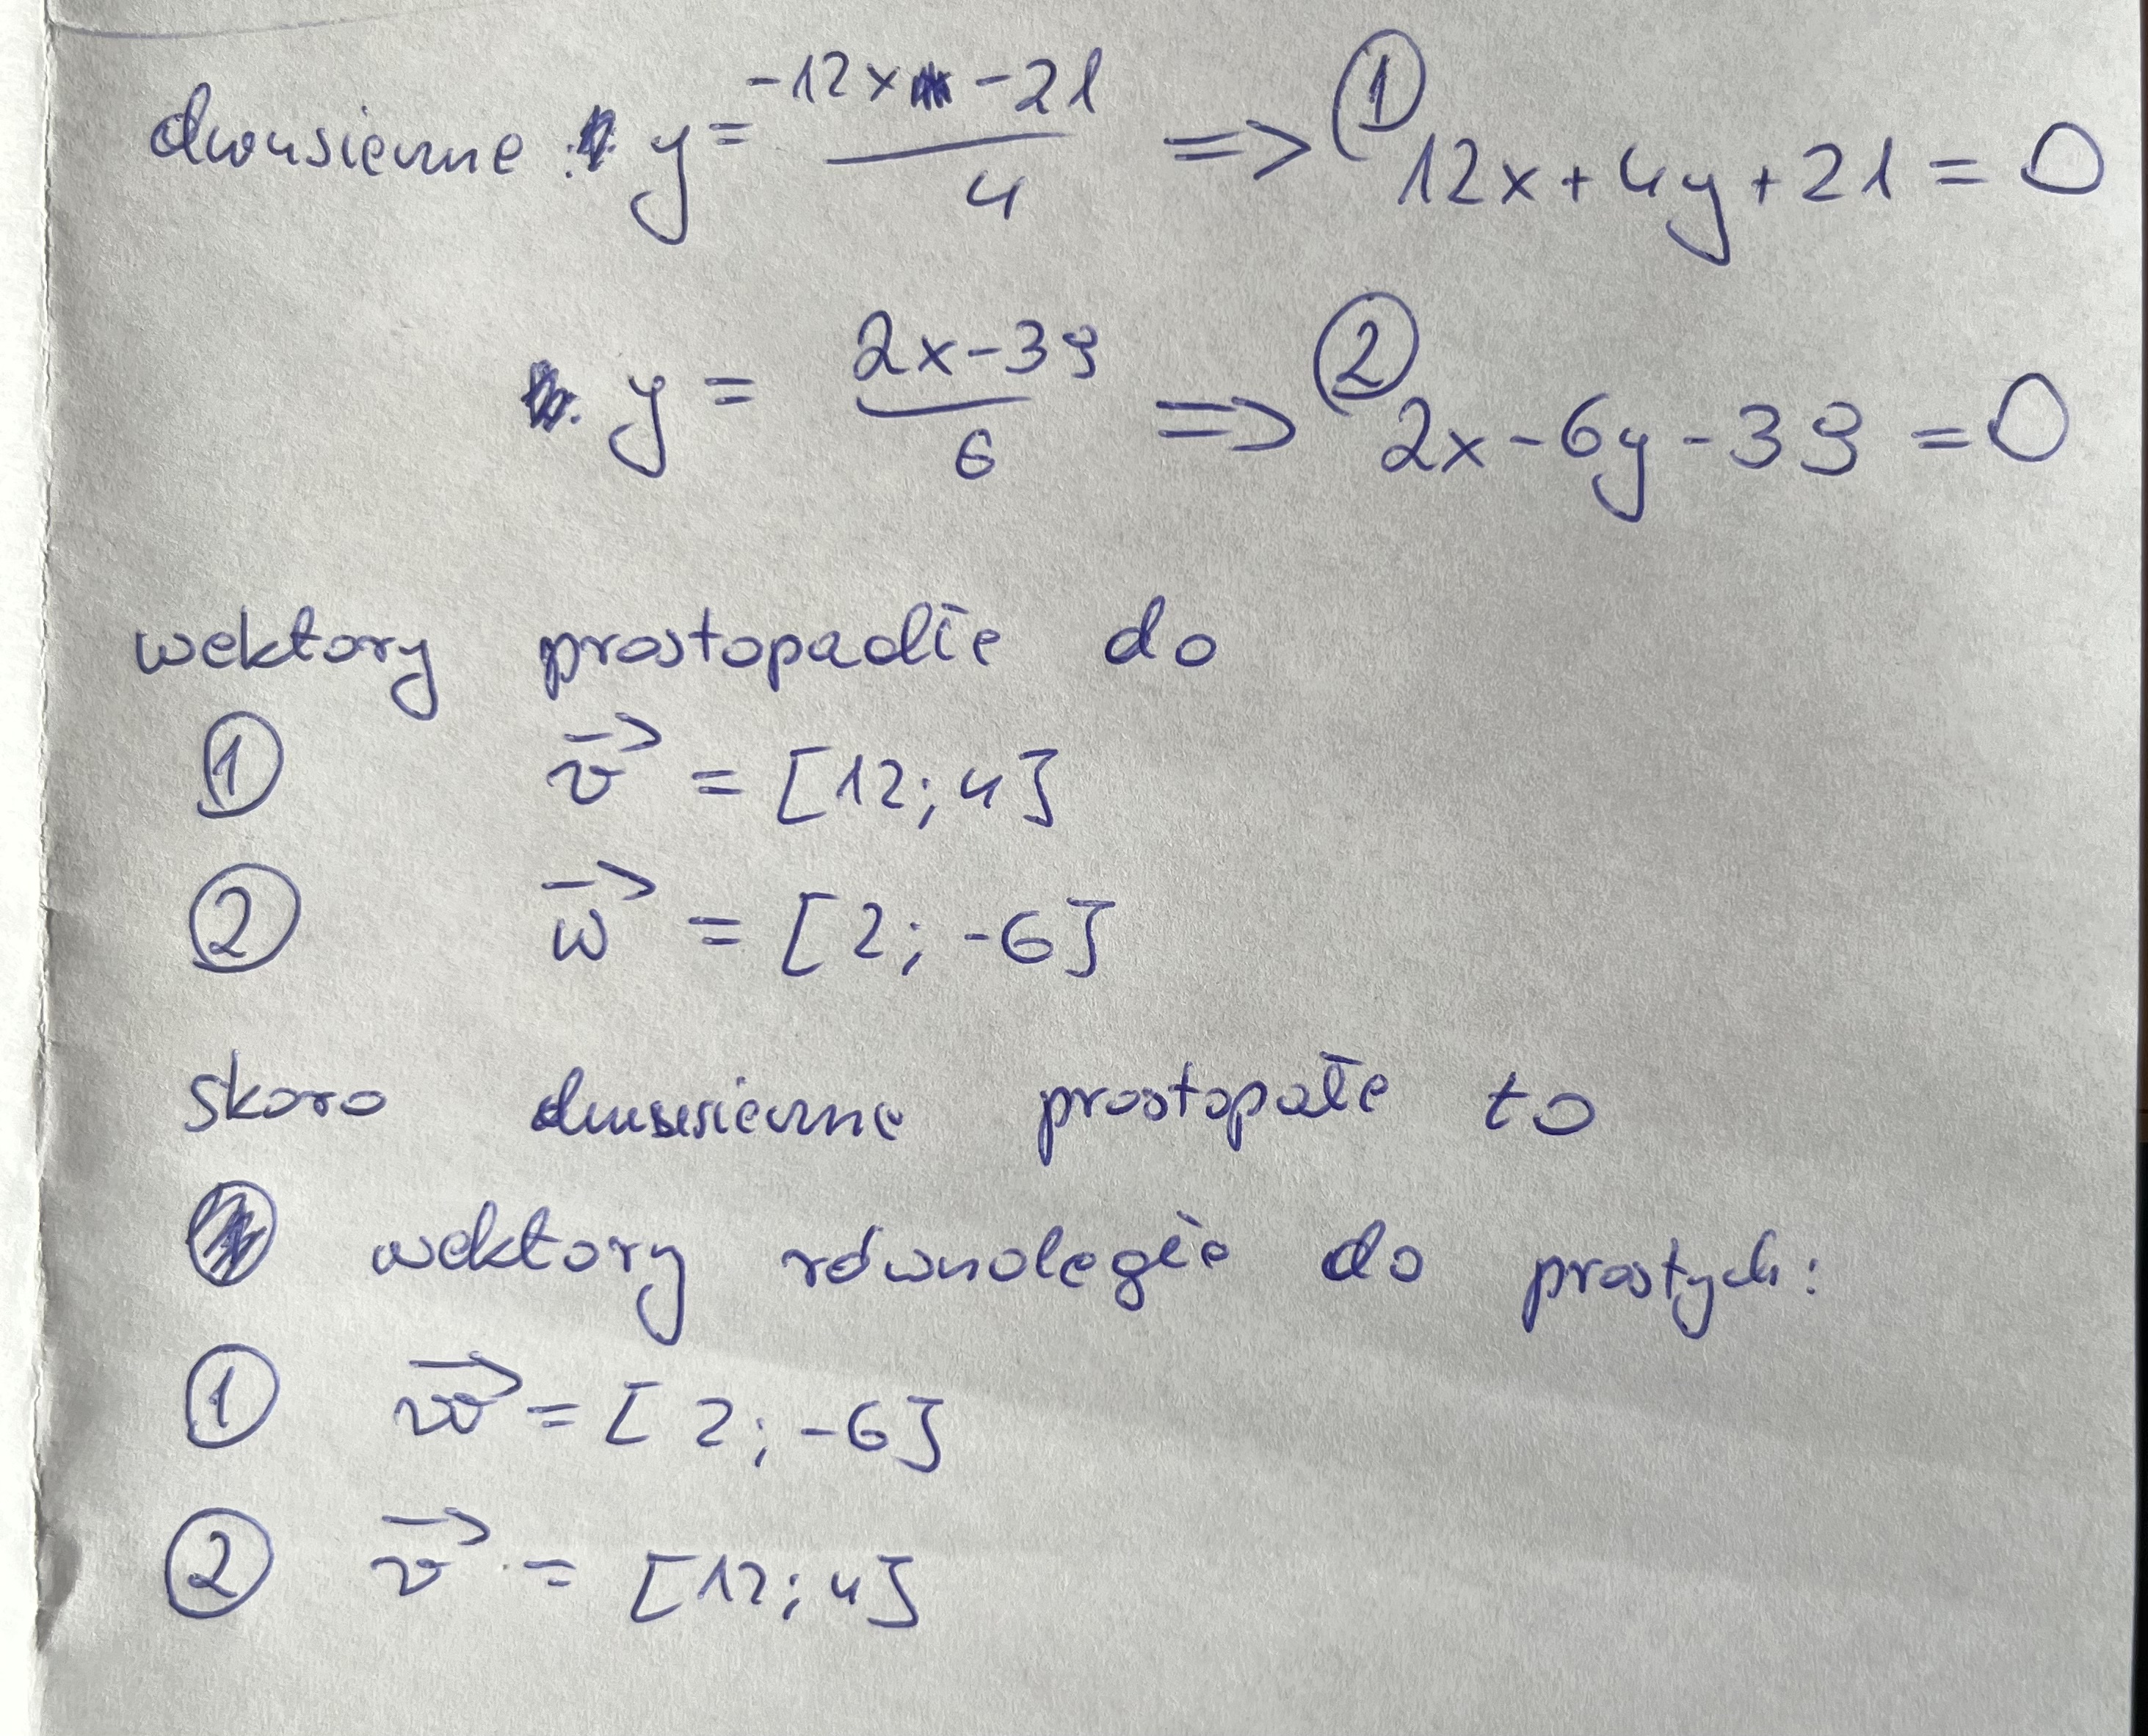 dwusieczne: y = (-12x -21)/4 => ① 12x + 4y + 21 = 0
y = (2x-39)/6 => ② 2x - 6y - 39 = 0
wektory prostopadłe do
① v⃗ = [12; 4]
② w⃗ = [2; -6]
skoro dwusieczne prostopałe to
wektory równoległe do prostych:
① w⃗ = [2; -6]
② v⃗ = [12; 4]